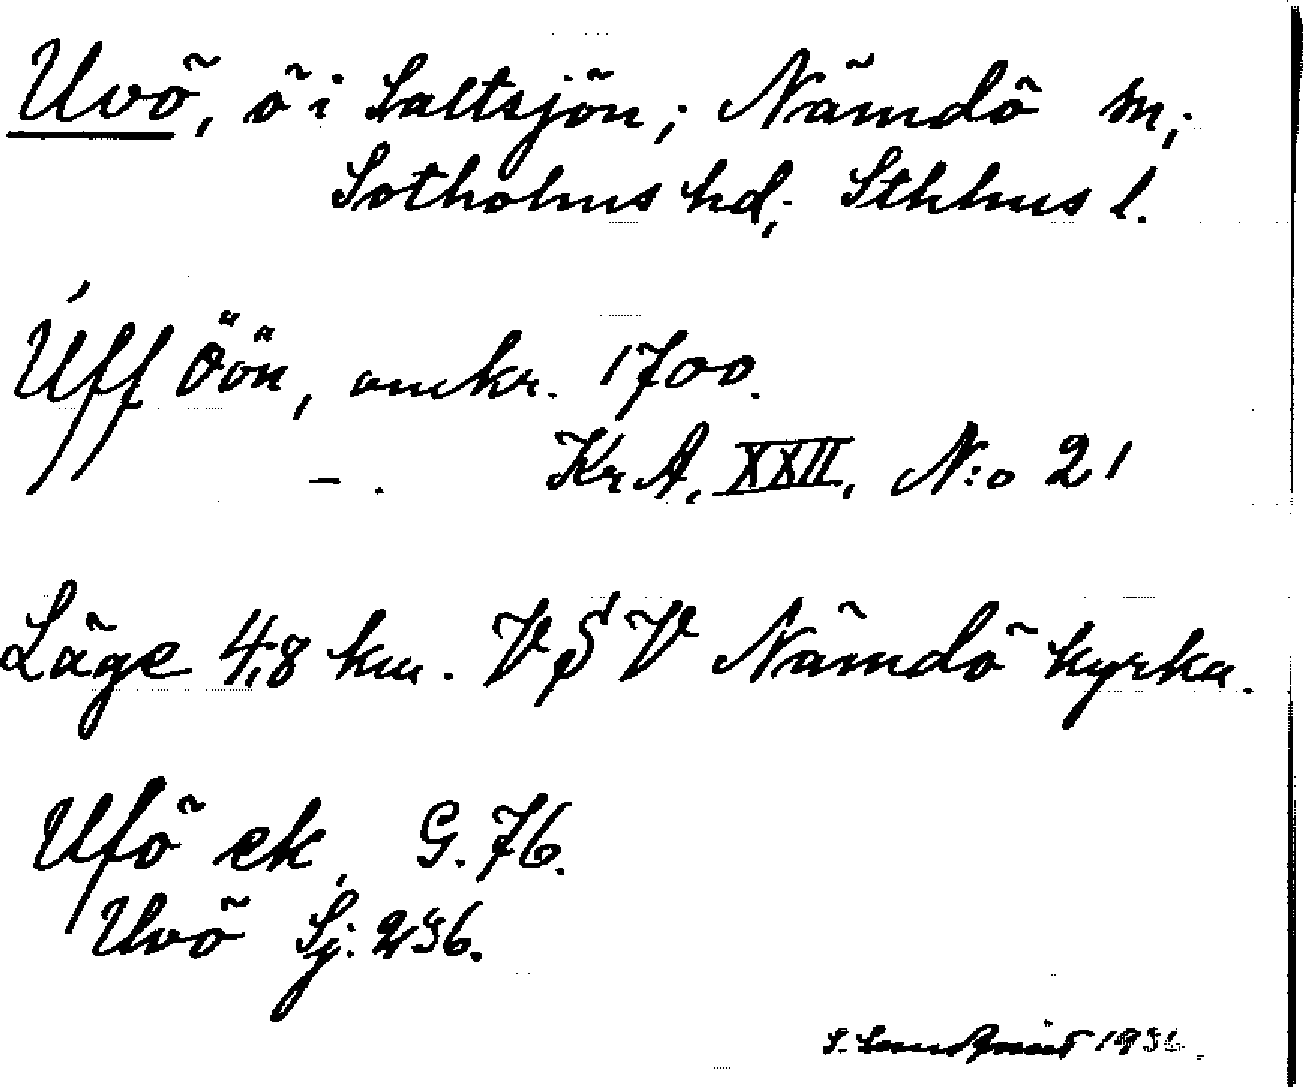 Uvö, ö i Saltsjön; Nämdö sn;
Sotholms hd; Sthlms l.
Úff öön, omkr. 1700.
– . Kr.A. XXII, N:o 21
Läge 4,8 km. V§V Nämdö kyrka.
Ufö ek, G. 76.
Uvö Sj. 236.
S. 1936.